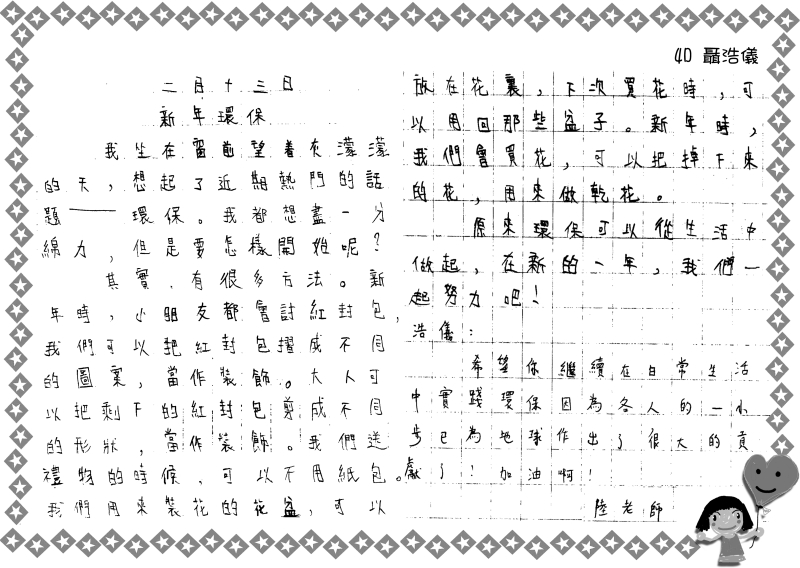 4D 聶浩儀
二月十三日
新年環保
我坐在窗前望着灰濛濛
的天，想起了近期熱門的話
題——環保。我都想盡一分
綿力，但是要怎樣開始呢？
其實，有很多方法。新
年時，小朋友都會討紅封包，
我們可以把紅封包摺成不同
的圖案，當作裝飾。大人可
以把剩下的紅封包剪成不同
的形狀，當作裝飾。我們送
禮物的時候，可以不用紙包。
我們用來裝花的花盆，可以
放在花裏，下次買花時，可
以用回那些盆子。新年時，
我們會買花，可以把掉下來
的花，用來做乾花。
原來環保可以從生活中
做起，在新的一年，我們一
起努力吧！
浩儀：
希望你繼續在日常生活
中實踐環保因為各人的一小
步已為地球作出了很大的貢
獻了！加油啊！
陸老師